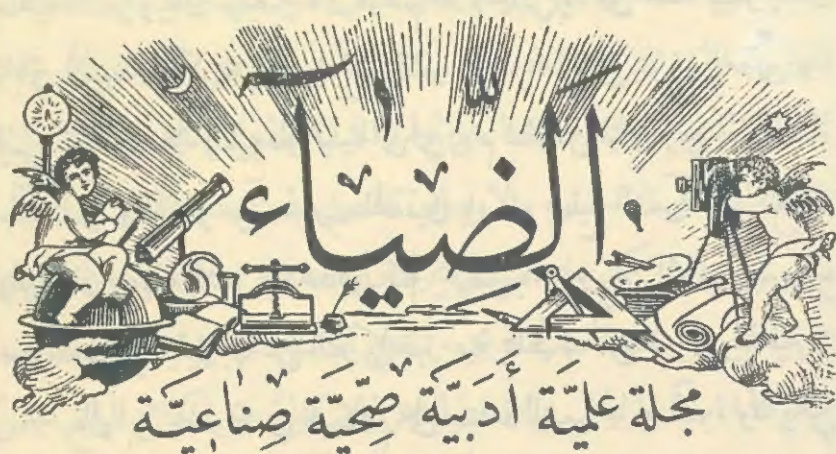 الضياء
مجلة علمية أدبية صحية صناعية